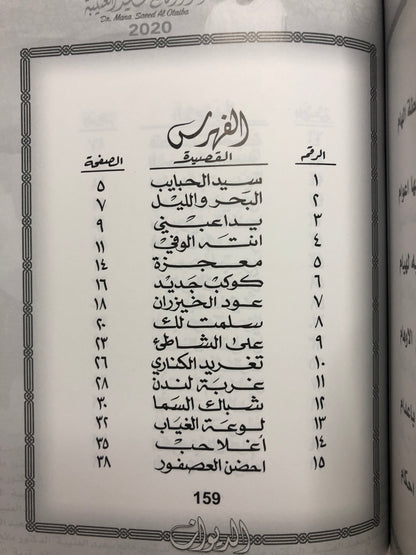 Dr. Mana Saeed Al Otaiba
2020
الفهرس
الرقم القصيدة الصفحة
١ سيد الحبايب ٥
٢ البحر والليل ٧
٣ يداعبني ٩
٤ انته الوفي ١١
٥ معجزة ١٤
٦ كوكب جديد ١٦
٧ عود الخيزران ١٨
٨ سلمت لك ٢٠
٩ على الشاطئ ٢٣
١٠ تغريد الكناري ٢٦
١١ غربة لندن ٢٨
١٢ شباك السما ٣٠
١٣ لوعة الغياب ٣٢
١٤ أغلا حب ٣٥
١٥ احضن العصفور ٣٨
159
الديوان